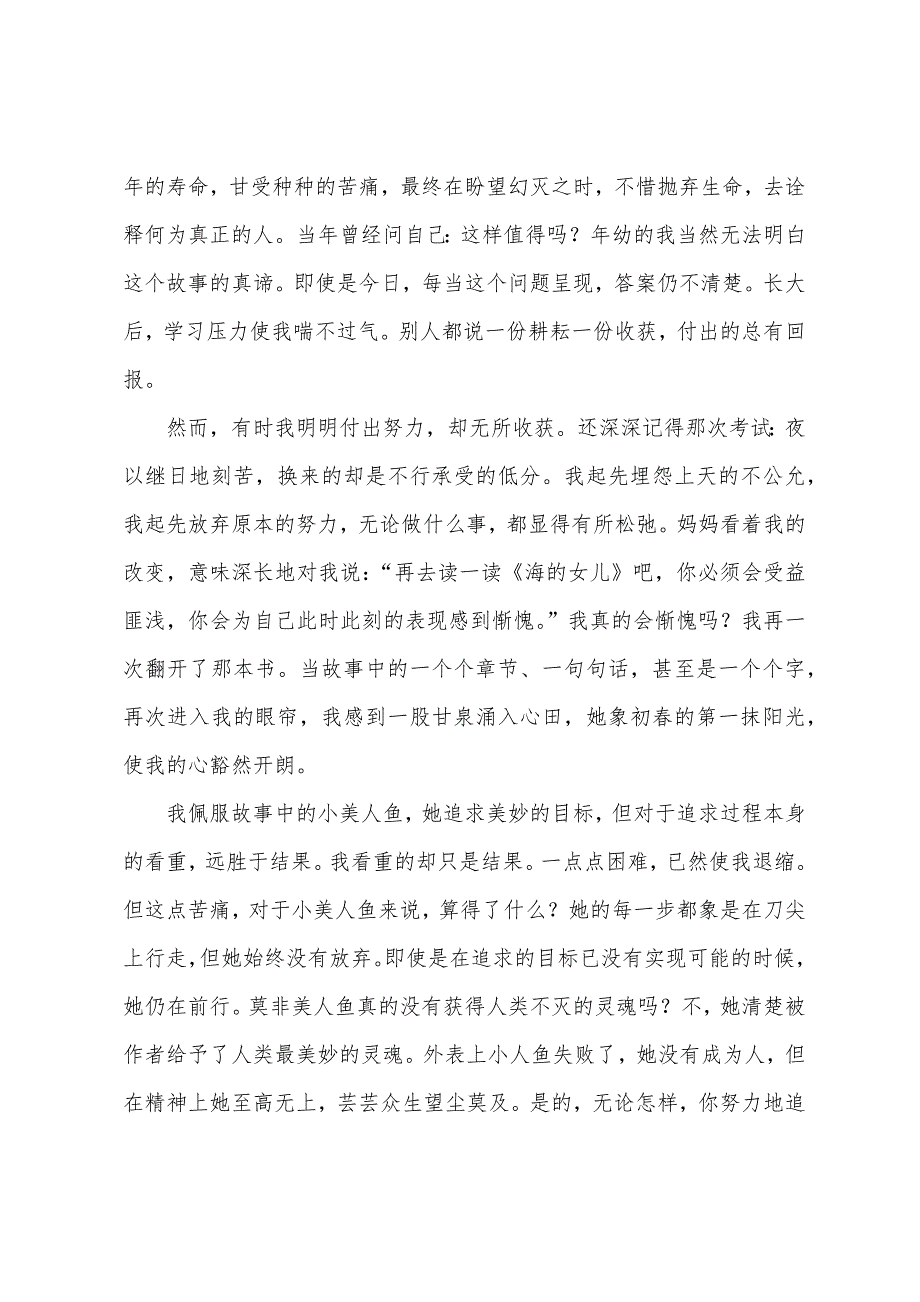 年的寿命，甘受种种的苦痛，最终在盼望幻灭之时，不惜抛弃生命，去诠
释何为真正的人。当年曾经问自己：这样值得吗？年幼的我当然无法明白
这个故事的真谛。即使是今日，每当这个问题呈现，答案仍不清楚。长大
后，学习压力使我喘不过气。别人都说一份耕耘一份收获，付出的总有回
报。
然而，有时我明明付出努力，却无所收获。还深深记得那次考试：夜
以继日地刻苦，换来的却是不行承受的低分。我起先埋怨上天的不公允，
我起先放弃原本的努力，无论做什么事，都显得有所松弛。妈妈看着我的
改变，意味深长地对我说：“再去读一读《海的女儿》吧，你必须会受益
匪浅，你会为自己此时此刻的表现感到惭愧。”我真的会惭愧吗？我再一
次翻开了那本书。当故事中的一个个章节、一句句话，甚至是一个个字，
再次进入我的眼帘，我感到一股甘泉涌入心田，她象初春的第一抹阳光，
使我的心豁然开朗。
我佩服故事中的小美人鱼，她追求美妙的目标，但对于追求过程本身
的看重，远胜于结果。我看重的却只是结果。一点点困难，已然使我退缩。
但这点苦痛，对于小美人鱼来说，算得了什么？她的每一步都象是在刀尖
上行走，但她始终没有放弃。即使是在追求的目标已没有实现可能的时候，
她仍在前行。莫非美人鱼真的没有获得人类不灭的灵魂吗？不，她清楚被
作者给予了人类最美妙的灵魂。外表上小人鱼失败了，她没有成为人，但
在精神上她至高无上，芸芸众生望尘莫及。是的，无论怎样，你努力地追